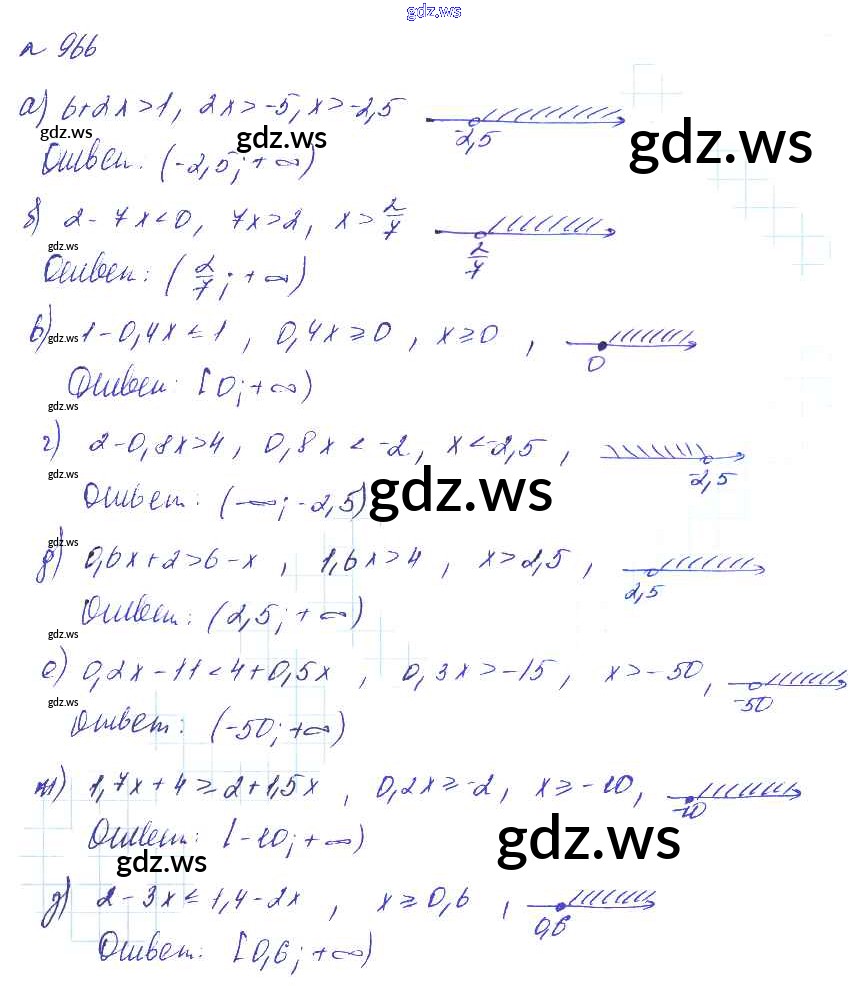 gdz.ws
№ 966
а) 6+2x>1, 2x>-5, x>-2,5 -2,5
gdz.ws gdz.ws gdz.ws
Ответ: (-2,5; +∞)
б) 2-7x<0, 7x>2, x>2/7 2/7
gdz.ws
Ответ: (2/7; +∞)
в) 1-0,4x≤1, 0,4x≥0, x≥0, 0
gdz.ws
Ответ: [0; +∞)
gdz.ws
г) 2-0,8x>4, 0,8x<-2, x<-2,5, -2,5
gdz.ws
Ответ: (-∞; -2,5) gdz.ws
д) 0,6x+2>6-x, 1,6x>4, x>2,5, 2,5
gdz.ws
Ответ: (2,5; +∞)
gdz.ws
е) 0,2x-11<4+0,5x, 0,3x>-15, x>-50, -50
gdz.ws
Ответ: (-50; +∞)
ж) 1,7x+4≥2+1,5x, 0,2x≥-2, x≥-10, -10
Ответ: [-10; +∞)
gdz.ws gdz.ws
з) 2-3x≤1,4-2x, x≥0,6, 0,6
Ответ: [0,6; +∞)